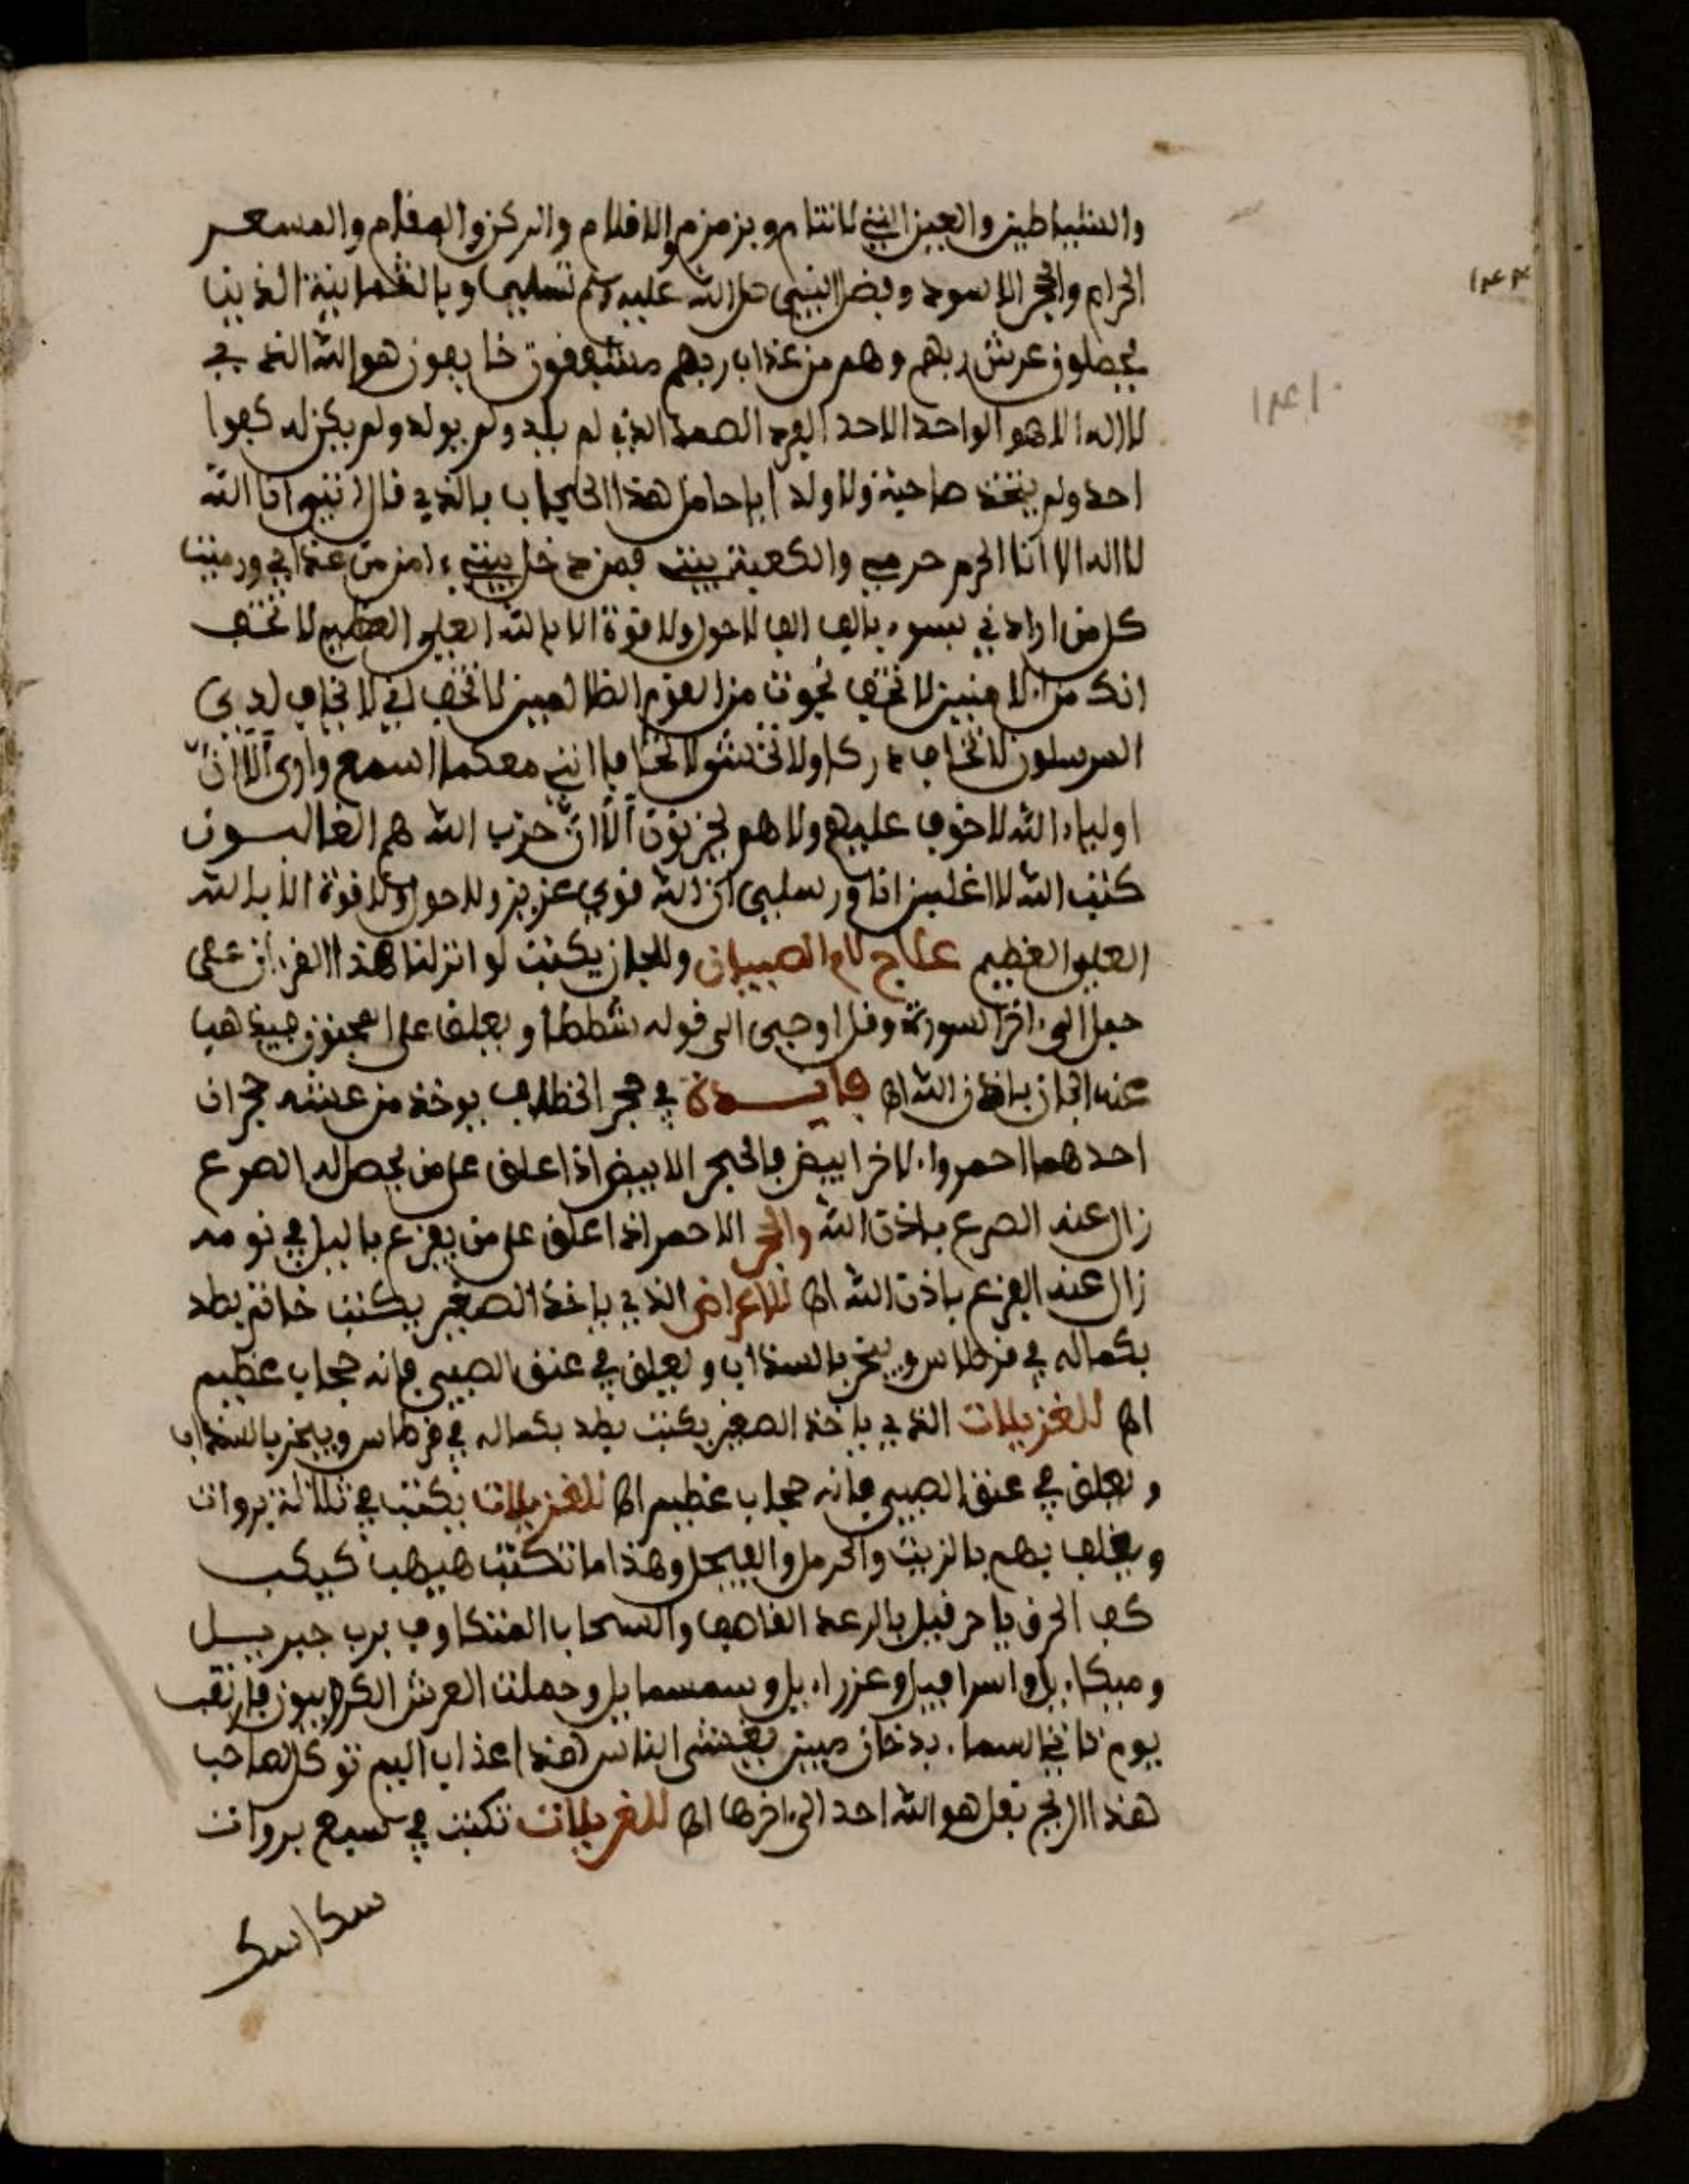 والشياطين والعين التي لا تنام وبزمزم والاقلام والركن والمقام والمشعر
الحرام والحجر الاسود وبضل النبي صلى الله عليه وسلم تسليما وبالثمانية الذين
يحملون عرش ربهم وهم من عذاب ربهم مشفقون خايفون هو الله الذي
لا اله الا هو الواحد الاحد الفرد الصمد الذي لم يلد ولم يولد ولم يكن له كفوا
احد ولم يتخذ صاحبة ولا ولدا يا حامل هذا الحجاب بالذي قال انني انا الله
لا اله الا انا الحرم حرمي والكعبة بيتي فمن دخل بيتي ءامن من عذابي ورميت
كل من ارادني بسوء بالف الف لا حول ولا قوة الا بالله العلي العظيم لا تخف
انك من الامنين لا تخف نجوت من القوم الظالمين لا تخف اني لا يخاف لدي
المرسلون لا تخاف دركا ولا تخشى لا تخافا انني معكما اسمع وارى الا ان
اولياء الله لا خوف عليهم ولا هم يحزنون الا ان حزب الله هم الغالبون
كتب الله لاغلبن انا ورسلي ان الله قوي عزيز ولا حول ولا قوة الا بالله
العلي العظيم علاج لام الصبيان وللجان يكتب لو انزلنا هذا القرءان على
جبل الى ءاخر السورة وقل اوحي الى قوله شططا ويعلق على المجنون
عنه الجان باذن الله اه فايدة في حجر الخطاف يوخذ من عشه حجران
احدهما احمر والاخر ابيض فالحجر الابيض اذا علق على من يحصل له الصرع
زال عنه الصرع باذن الله والحجر الاحمر اذا علق على من يفزع بالليل في نومه
زال عنه الفزع باذن الله اه للاعراض الذي ياخذ الصغير يكتب خاتم بطد
بكماله في قرطاس ويبخر بالسذاب ويعلق في عنق الصبي فانه حجاب عظيم
اه للغزيلات الذي ياخذ الصغير يكتب بطد بكماله في قرطاس ويبخر بالسذاب
ويعلق في عنق الصبي فانه حجاب عظيم اه للغزيلات يكتب في ثلاثة بروات
بهم بالزيت والحرمل والفيجل وهذا ما تكتب هيهب كيكب
كف الحرف يا حرفيل بالرعد القاصف والسحاب برب جبرييل
وميكاءيل واسرافيل وعزراءيل وسمسماييل وحملت العرش الكروبيون فارتقب
يوم تاتي السماء بدخان مبين يغشى الناس هذا عذاب اليم توكل لصاحب
هذا الريح بقل هو الله احد الى ءاخرها اه للغزيلات تكتب في سبع بروات